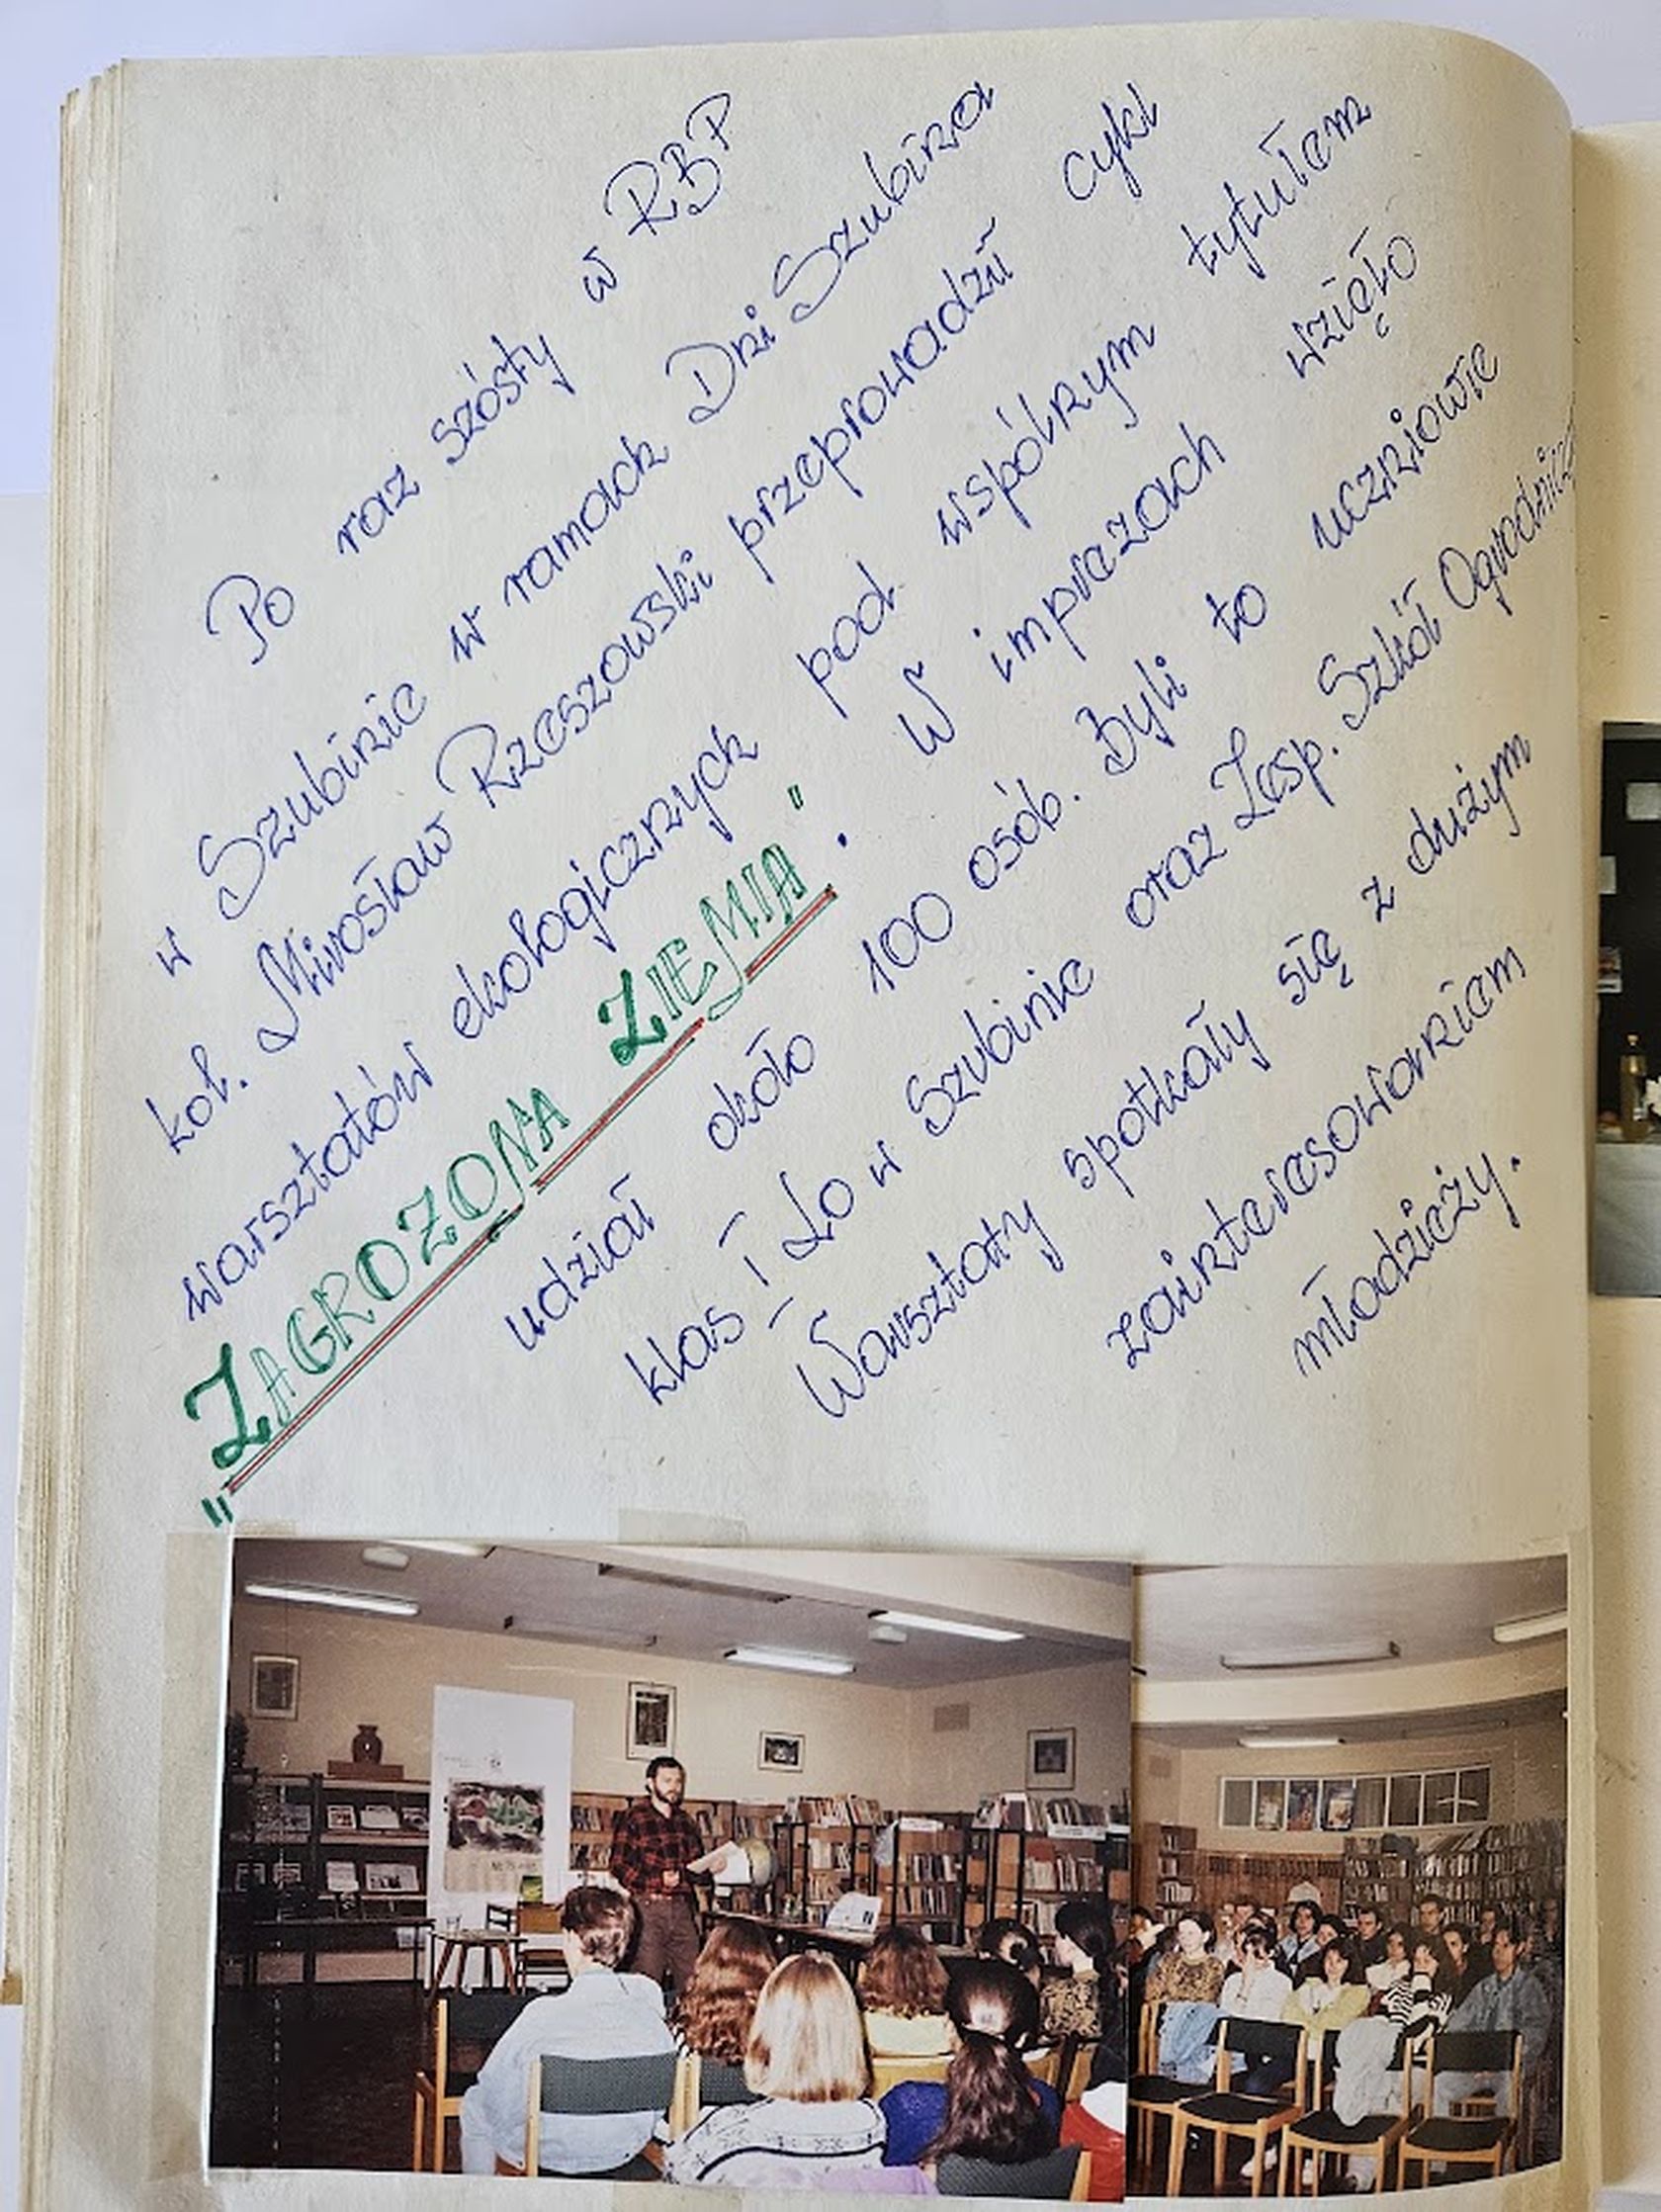 Po raz szósty w RBP
w Szubinie w ramach Dni Szubina
kol. Mirosław Rzeszowski przeprowadził cykl
warsztatów ekologicznych pod wspólnym tytułem
"ZAGROZONA ZIEMIA". W imprezach wzięło
udział około 100 osób. Byli to uczniowie
klas I Lo w Szubinie oraz Zesp. Szkół Ogrodnicz
Warsztaty spotkały się z dużym
zainteresowaniem
młodzieży.